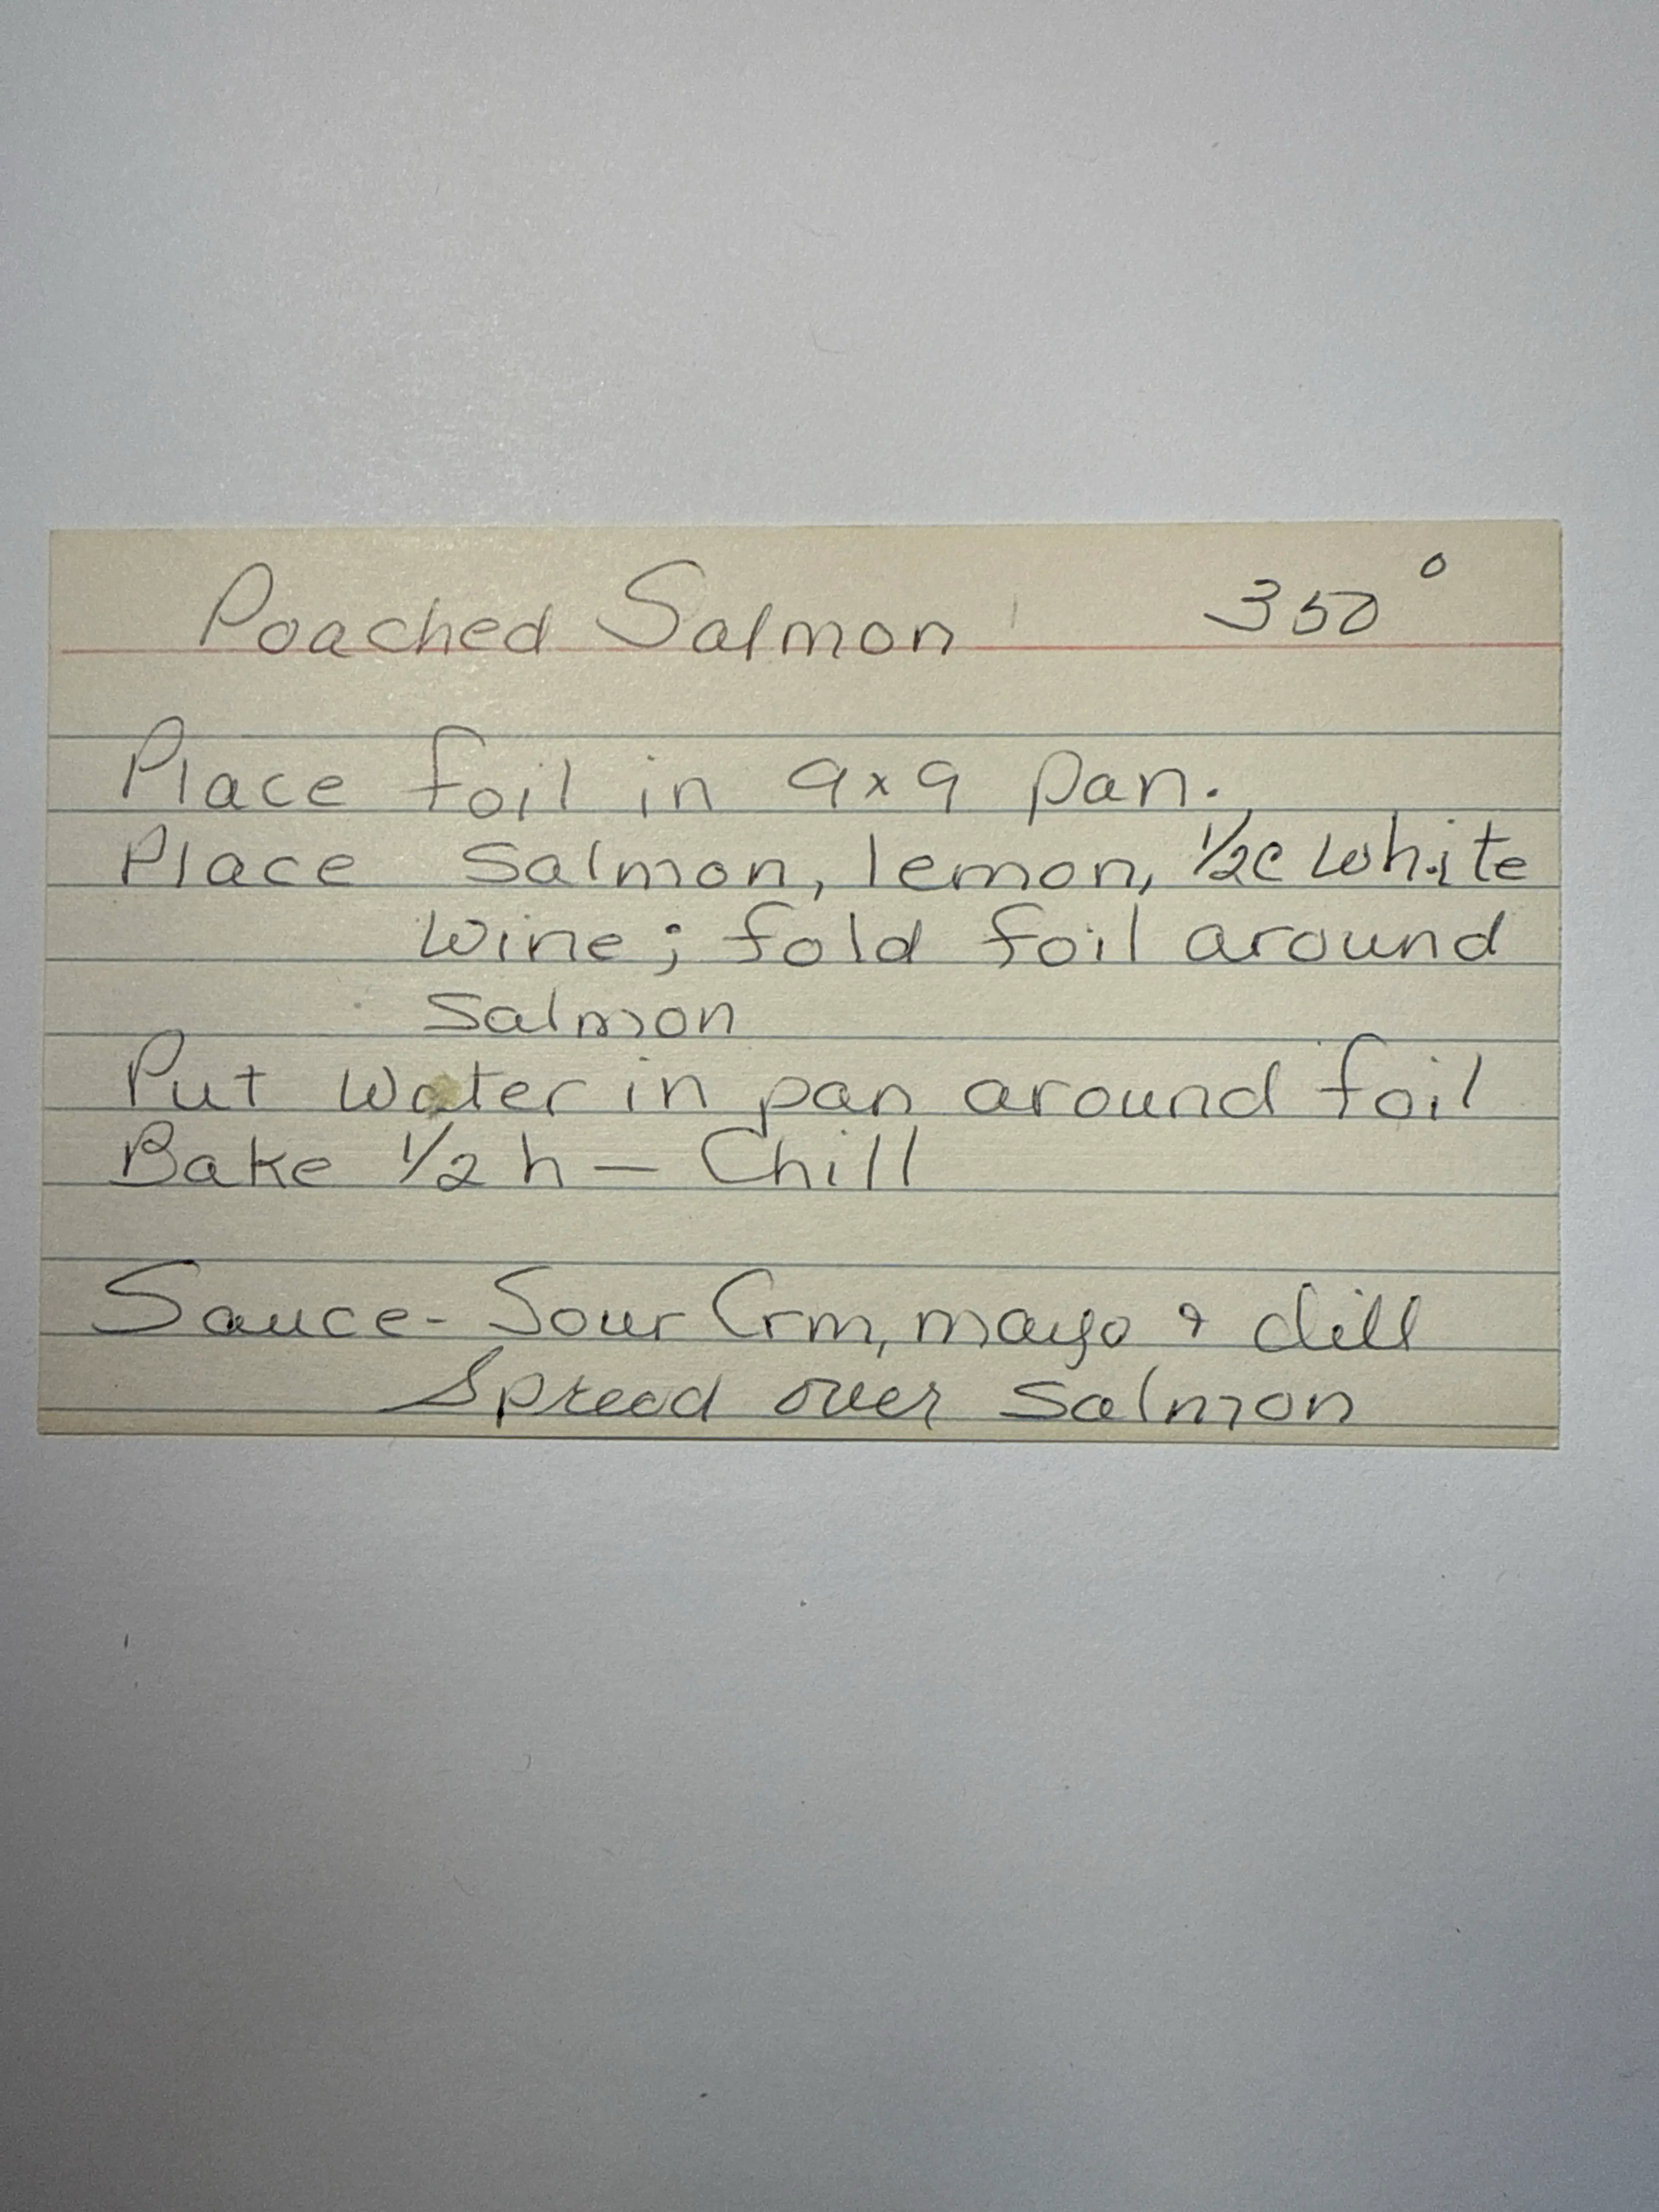 Poached Salmon 350°
Place foil in 9x9 pan.
Place salmon, lemon, 1/2c white
wine; fold foil around
salmon
Put water in pan around foil
Bake 1/2 h — Chill
Sauce - Sour Crm, mayo & dill
Spread over salmon